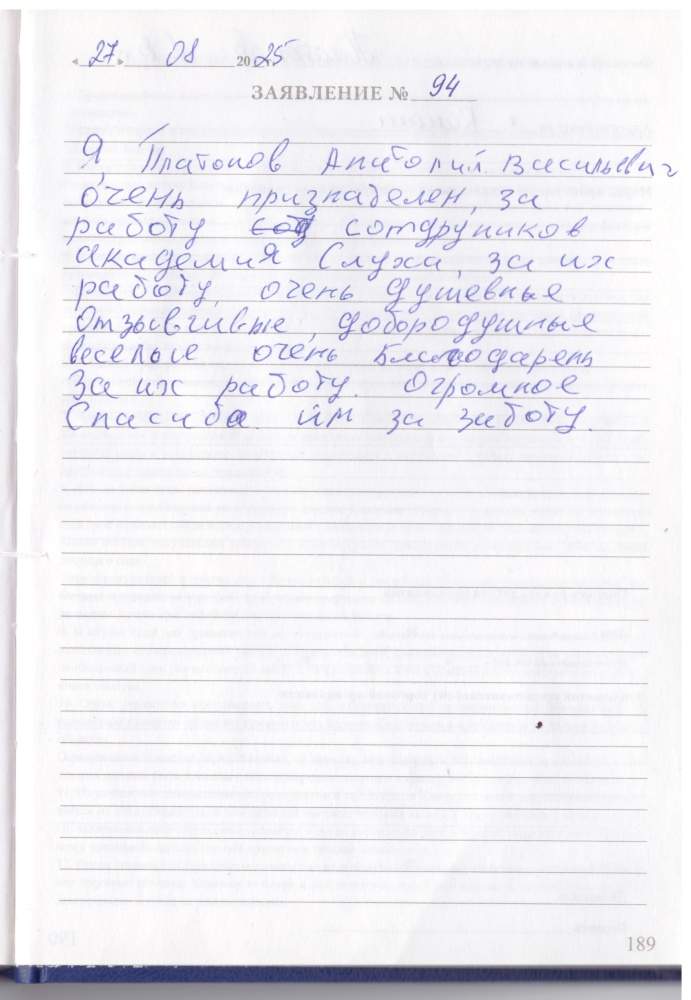 « 27 » 08 2025
ЗАЯВЛЕНИЕ № 94
Я, Платонов Анатолий Васильевич
очень признаделен, за
работу сотдруников
академия Слуха, за их
работу, очень душевные
отзывчивые, добородушные
веселые очень благодарень
За их работу. Огромное
Спасиба им за заботу.
189